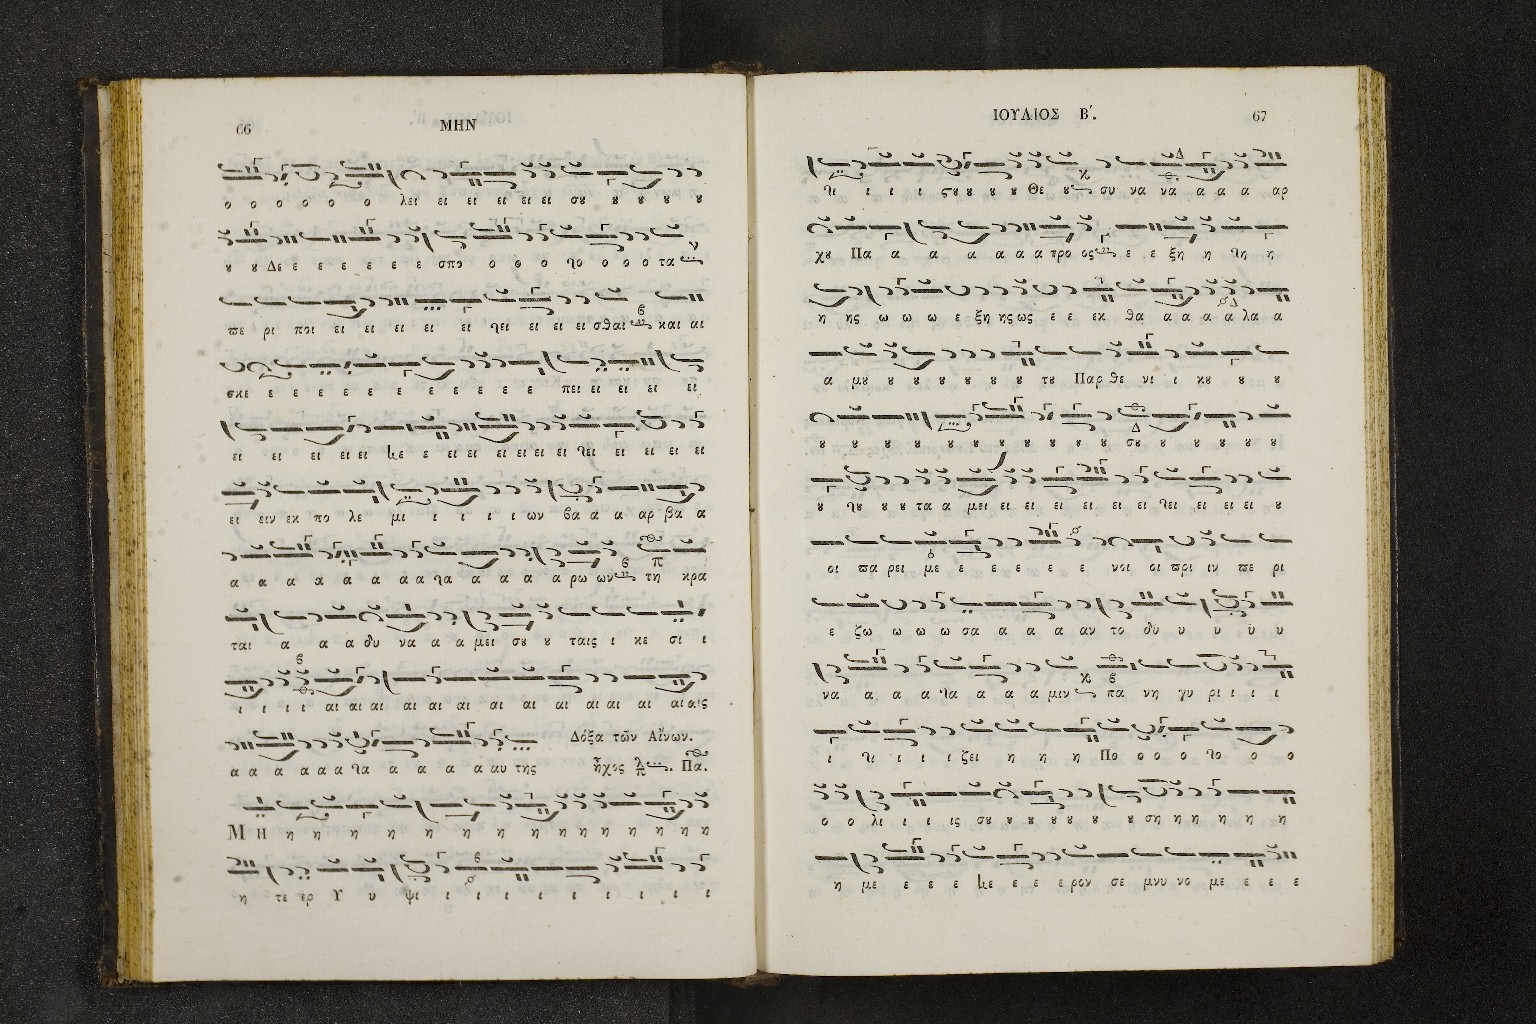 66
ΜΗΝ
ο ο ο ο ο ο λει ει ει ει ει ει σȣ ȣ ȣ ȣ ȣ
ȣ ȣ Δε ε ε ε ε ε ε σπο ο ο ο το ο ο ο τα
πε ρι ποι ει ει ει ει ει τει ει ει ει σθαι και αι
σκε ε ε ε ε ε ε ε ε ε ε πει ει ει ει ει
ει ει ει ει ει κε ε ει ει ει ει ει ει τει ει ει ει ει
ει ειν εκ πο λε μι ι ι ι ι ων βα α α αρ βα α
α α α α α α α α α τα α α α α ρω ων τη κρα
ται α α α δυ να α α μει σȣ ȣ ταις ι κε σι ι
ι ι ι ι αι αι αι αι αι αι αι αι αι αι αι αι αι αις
Δόξα τῶν Αἴνων.
α α α α α α τα α α α α αυ της
ἦχος Πα.
Μ η η η η η η η η η η η η η η η
η τε ερ Υ υ ψι ι ι ι ι ι ι ι ι ι
ΙΟΥΛΙΟΣ Β΄.
67
τι ι ι ι ςȣ ȣ ȣ ȣ Θε ȣ συ να να α α α αρ
χȣ Πα α α α α α α τρο ος ε ε ξη η τη η
η ης ω ω ω ε ξη ης ως ε ε εκ θα α α α α λα α
α μȣ ȣ ȣ ȣ ȣ ȣ ȣ ȣ τȣ Παρ θε νι ι κȣ ȣ ȣ
ȣ ȣ ȣ ȣ ȣ ȣ ȣ ȣ ȣ ȣ ȣ σȣ ȣ ȣ ȣ ȣ ȣ
ȣ τȣ ȣ ȣ τα α μει ει ει ει ει ει ει ει τει ει ει ει ȣ
οι πα ρει με ε ε ε ε ε νοι οι πρι ιν πε ρι
ε ζω ω ω ω σα α α α αν το δυ υ υ υ υ
να α α α τα α α α μιν πα νη γυ ρι ι ι ι
ι τι ι ι ι ζει η η η Πο ο ο ο το ο ο
ο ο λι ι ι ις σȣ ȣ ȣ ȣ ȣ ȣ ȣ ση η η η η η
η με ε ε ε κε ε ε ε ρον σε μνυ νο με ε ε ε